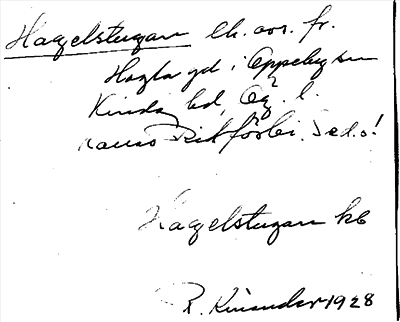 Hagelstugan lh. avs. fr.
Hagla gd i Oppeby sn
Kinda hd, Ög. l.
förbi. Se d. o!
Hagelstugan kb
R. Kinander 1928